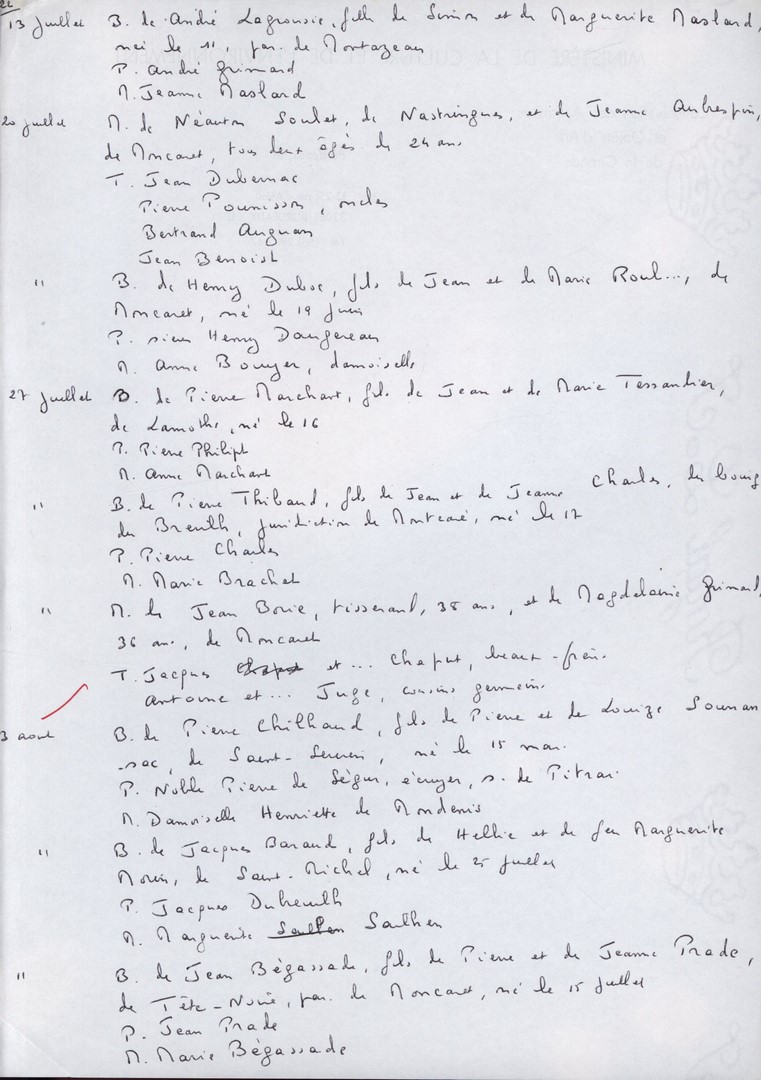 13 juillet B. de André Lagrousie, fils de Simon et de Marguerite Maslard,
né le 11, par. de Montazeau
P. André Grimard
M. Jeanne Maslard
20 juillet M. de Soulet, de Nastringues, et de Jeanne Aubespin,
de Moncaret, tous deux âgés de 24 ans
T. Jean Dubernac
Pierre Pounisson, oncles
Bertrand
Jean Benoist
" B. de Henry Dubos, fils de Jean et de Marie Roul..., de
Moncaret, né le 19 juin
P. sieur Henry Daugereau
M. Anne Bouyer, damoiselle
27 juillet B. de Pierre Marchart, fils de Jean et de Marie Tessandier,
de Lamothe, né le 16
P. Pierre Philipt
M. Anne Marchart
" B. de Pierre Thibaud, fils de Jean et de Jeanne Charles, du bourg
du Breuilh, juridiction de né le 17
P. Pierre Charles
M. Marie Brachet
" M. de Jean Borie, tisserand, 38 ans, et de Magdelaine Grimard,
36 ans, de Moncaret
T. Jacques et ... Chaput, beaux-frères
Antoine et ... Juge, cousins germains
3 aout B. de Pierre Chilhaud, fils de Pierre et de Louize Sounan
-sac, de Saint-Seurin, né le 15 mai
P. Noble Pierre de Ségur, écuyer, s. de Pitrai
M. Damoiselle Henriette de
" B. de Jacques Baraud, fils de Hellie et de feu Marguerite
Morin, de Saint-Michel, né le 25 juillet
P. Jacques Dubreuilh
M. Marguerite Saulhen
" B. de Jean Bégassade, fils de Pierre et de Jeanne Prade,
de Tête-Noire, par. de Moncaret, né le 15 juillet
P. Jean Prade
M. Marie Bégassade